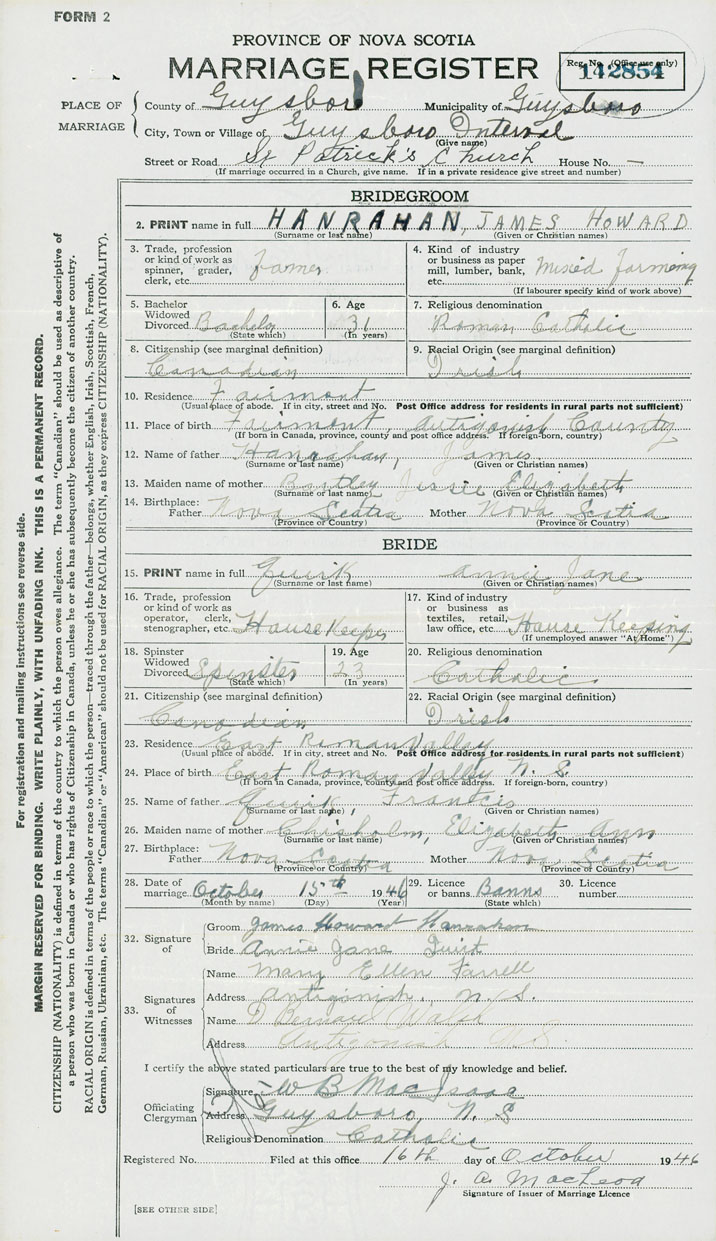 FORM 2
PROVINCE OF NOVA SCOTIA
MARRIAGE REGISTER
Reg. No. (Office use only)
142854
PLACE OF MARRIAGE
County of Guysboro Municipality of Guysboro
City, Town or Village of Guysboro Interval
(Give name)
Street or Road St Patrick's Church House No. —
(If marriage occurred in a Church, give name. If in a private residence give street and number)
BRIDEGROOM
2. PRINT name in full HANRAHAN, JAMES HOWARD
(Surname or last name) (Given or Christian names)
3. Trade, profession or kind of work as spinner, grader, clerk, etc. Farmer
4. Kind of industry or business as paper mill, lumber, bank, etc. Mixed farming
(If labourer specify kind of work above)
5. Bachelor Widowed Divorced Bachelor
(State which)
6. Age 31
(In years)
7. Religious denomination
Roman Catholic
8. Citizenship (see marginal definition)
Canadian
9. Racial Origin (see marginal definition)
Irish
10. Residence Fairmont
(Usual place of abode. If in city, street and No. Post Office address for residents in rural parts not sufficient)
11. Place of birth Fairmont, Antigonish County
(If born in Canada, province, county and post office address. If foreign-born, country)
12. Name of father Hanrahan, James
(Surname or last name) (Given or Christian names)
13. Maiden name of mother Bentley Jessie Elizabeth
(Surname or last name) (Given or Christian names)
14. Birthplace:
Father Nova Scotia Mother Nova Scotia
(Province or Country) (Province or Country)
BRIDE
15. PRINT name in full Quirk Annie Jane
(Surname or last name) (Given or Christian names)
16. Trade, profession or kind of work as operator, clerk, stenographer, etc. House Keeper
17. Kind of industry or business as textiles, retail, law office, etc. House Keeping
(If unemployed answer "At Home")
18. Spinster Widowed Divorced Spinster
(State which)
19. Age 23
(In years)
20. Religious denomination
Catholic
21. Citizenship (see marginal definition)
Canadian
22. Racial Origin (see marginal definition)
Irish
23. Residence East Roman Valley
(Usual place of abode. If in city, street and No. Post Office address for residents in rural parts not sufficient)
24. Place of birth East Roman Valley N. S
(If born in Canada, province, county and post office address. If foreign-born, country)
25. Name of father Quirk, Francis
(Surname or last name) (Given or Christian names)
26. Maiden name of mother Chisholm, Elizabeth Ann
(Surname or last name) (Given or Christian names)
27. Birthplace:
Father Nova Scotia Mother Nova Scotia
(Province or Country) (Province or Country)
28. Date of marriage October 15th 1946
(Month by name) (Day) (Year)
29. Licence or banns Banns
(State which)
30. Licence number
32. Signature of
Groom James Howard Hanrahan
Bride Annie Jane Quirk
33. Signatures of Witnesses
Name Mary Ellen Farrell
Address Antigonish, N. S.
Name D Bernard Walsh
Address Antigonish N.S.
I certify the above stated particulars are true to the best of my knowledge and belief.
Officiating Clergyman
Signature W B MacIsaac
Address Guysboro, N. S
Religious Denomination Catholic
Registered No. Filed at this office 16th day of October 1946
J. A. MacLeod
Signature of Issuer of Marriage Licence
[SEE OTHER SIDE]
For registration and mailing instructions see reverse side.
MARGIN RESERVED FOR BINDING. WRITE PLAINLY, WITH UNFADING INK. THIS IS A PERMANENT RECORD.
CITIZENSHIP (NATIONALITY) is defined in terms of the country to which the person owes allegiance. The term "Canadian" should be used as descriptive of
a person who was born in Canada or who has rights of Citizenship in Canada, unless he or she has subsequently become the citizen of another country.
RACIAL ORIGIN is defined in terms of the people or race to which the person—traced through the father—belongs, whether English, Irish, Scottish, French,
German, Russian, Ukrainian, etc. The terms "Canadian" or "American" should not be used for RACIAL ORIGIN, as they express CITIZENSHIP (NATIONALITY).